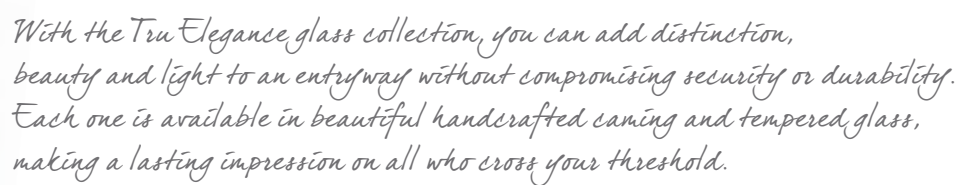 With the Tru Elegance glass collection, you can add distinction,
beauty and light to an entryway without compromising security or durability.
Each one is available in beautiful handcrafted caming and tempered glass,
making a lasting impression on all who cross your threshold.